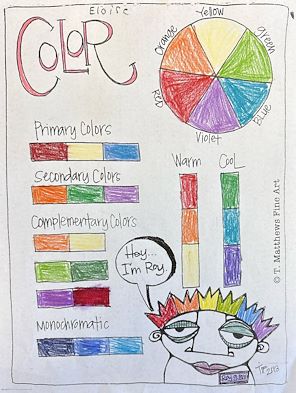 Eloise
COLOR
Yellow
Orange
green
Red
Blue
Violet
Primary Colors
Secondary Colors
Complementary Colors
Monochromatic
Warm
Cool
Hey...
I'm Roy.
© T. Matthews Fine Art